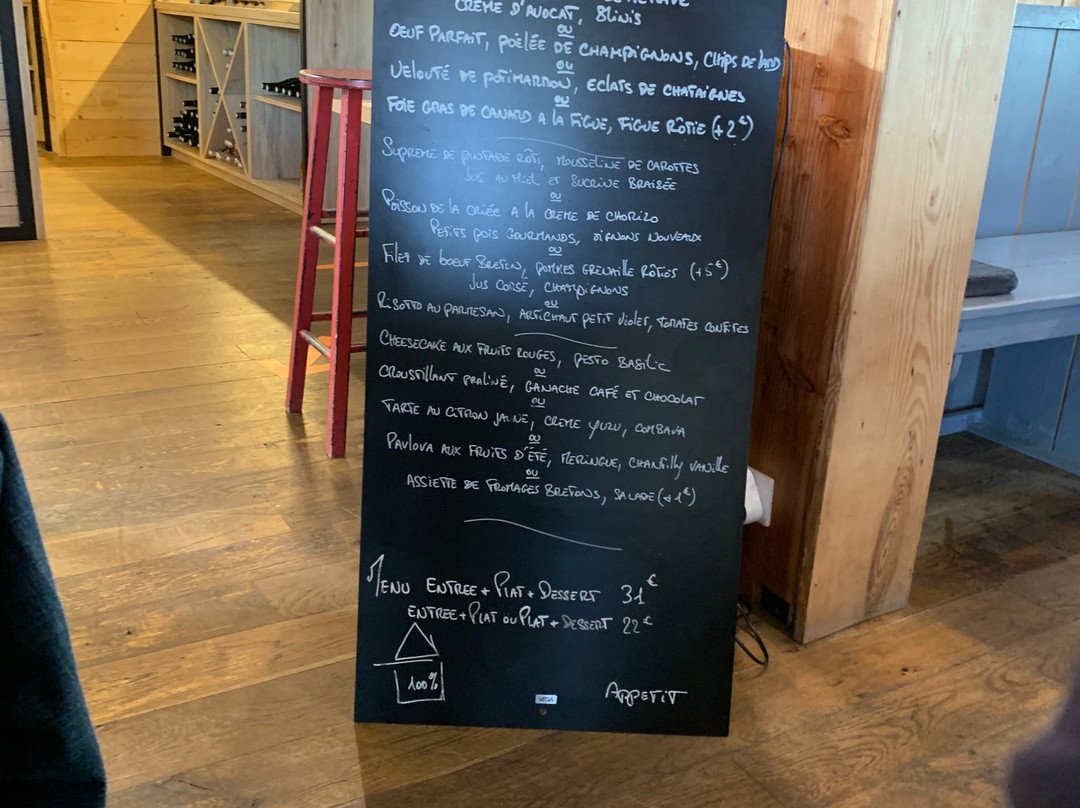 CRÈME D'AVOCAT, BLINIS
OU
OEUF PARFAIT, POÊLÉE DE CHAMPIGNONS, CHIPS DE LARD
OU
VELOUTÉ DE POTIMARRON, ECLATS DE CHATAIGNES
OU
FOIE GRAS DE CANARD A LA FIGUE, FIGUE RÔTIE (+2€)
SUPREME DE PINTADE RÔTI, MOUSSELINE DE CAROTTES
JUS AU MIEL ET SUCRINE BRAISÉE
OU
POISSON DE LA CRIÉE A LA CREME DE CHORIZO
PETITS POIS GOURMANDS, OIGNONS NOUVEAUX
OU
FILET DE BOEUF BRETON, POMMES GRENAILLE RÔTIES (+5€)
JUS CORSÉ, CHAMPIGNONS
OU
RISOTTO AU PARMESAN, ARTICHAUT PETIT VIOLET, TOMATES CONFITES
CHEESECAKE AUX FRUITS ROUGES, PESTO BASILIC
OU
CROUSTILLANT PRALINÉ, GANACHE CAFÉ ET CHOCOLAT
OU
TARTE AU CITRON JAUNE, CREME YUZU, COMBAVA
OU
PAVLOVA AUX FRUITS D'ÉTÉ, MERINGUE, CHANTILLY VANILLE
OU
ASSIETTE DE FROMAGES BRETONS, SALADE (+1€)
MENU ENTREE + PLAT + DESSERT 31€
ENTREE + PLAT OU PLAT + DESSERT 22€
100%
APPETIT